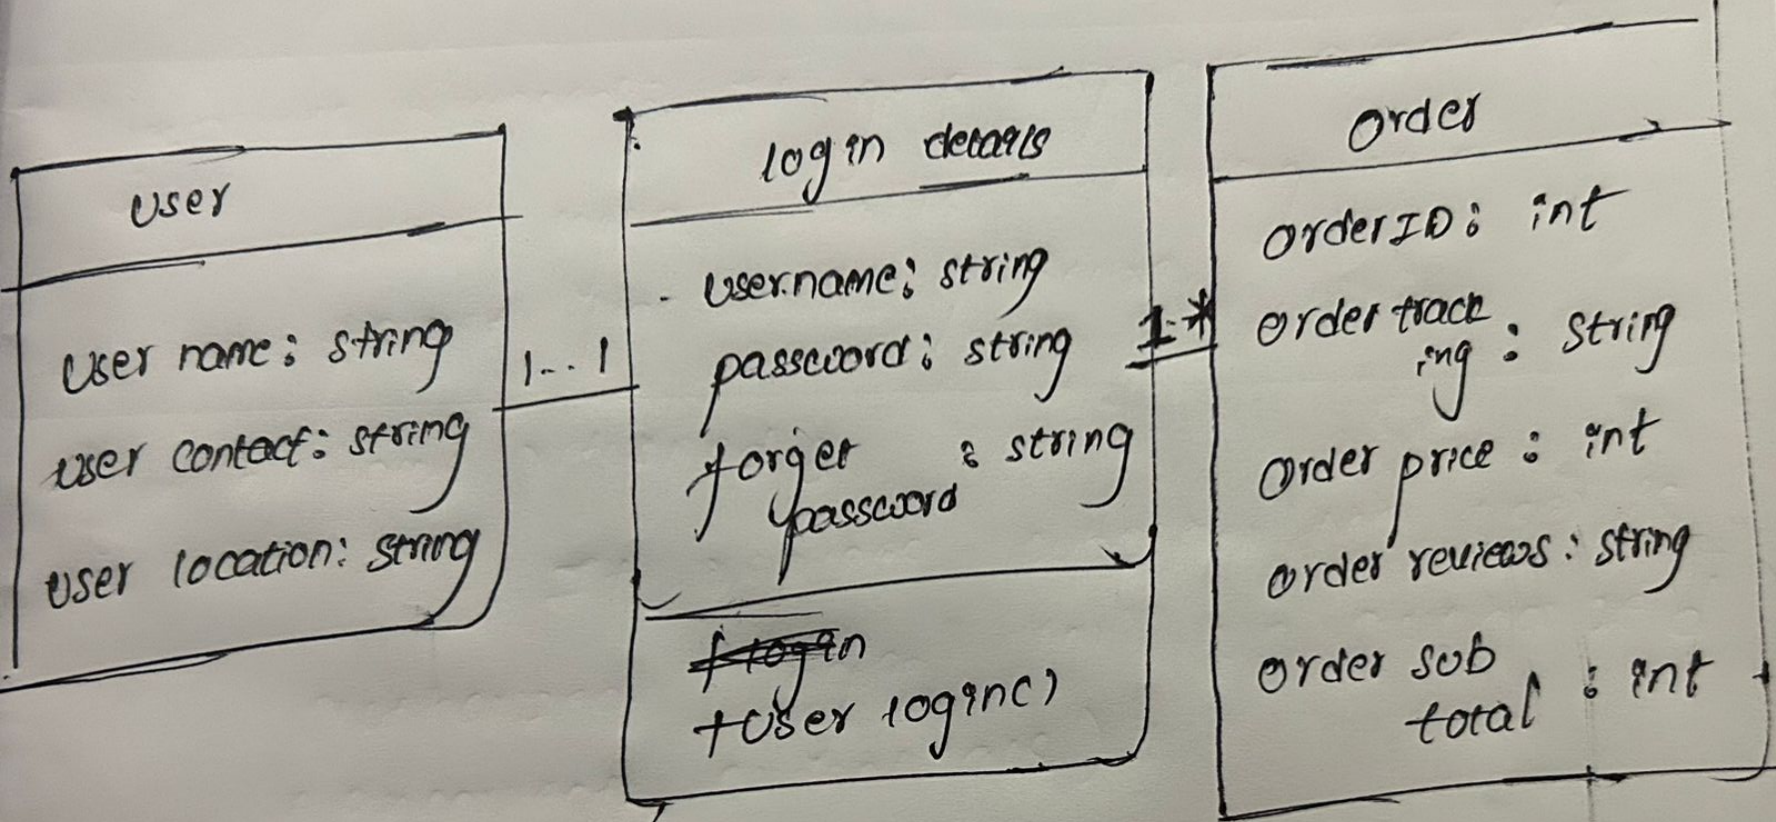 User
User name: string
user contact: string
user location: string
1...1
login details
username: string
password: string
forget : string
password
+ login
+User login()
1..*
Order
orderID: int
order track
ing : string
order price : int
order reviews: string
order sub
total : int